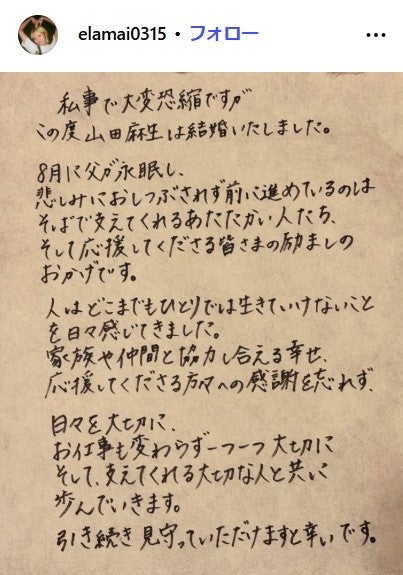 elamai0315 • フォロー
私事で大変恐縮ですが
この度山田麻生は結婚いたしました。
8月に父が永眠し、
悲しみにおしつぶされず前に進めているのは
そばで支えてくれるあたたかい人たち、
そして応援してくださる皆さまの励ましの
おかげです。
人はどこまでもひとりでは生きていけないこと
を日々感じてきました。
家族や仲間と協力し合える幸せ、
応援してくださる方々への感謝を忘れず、
日々を大切に、
お仕事も変わらず一つ一つ大切に
そして、支えてくれる大切な人と共に
歩んでいきます。
引き続き見守っていただけますと幸いです。